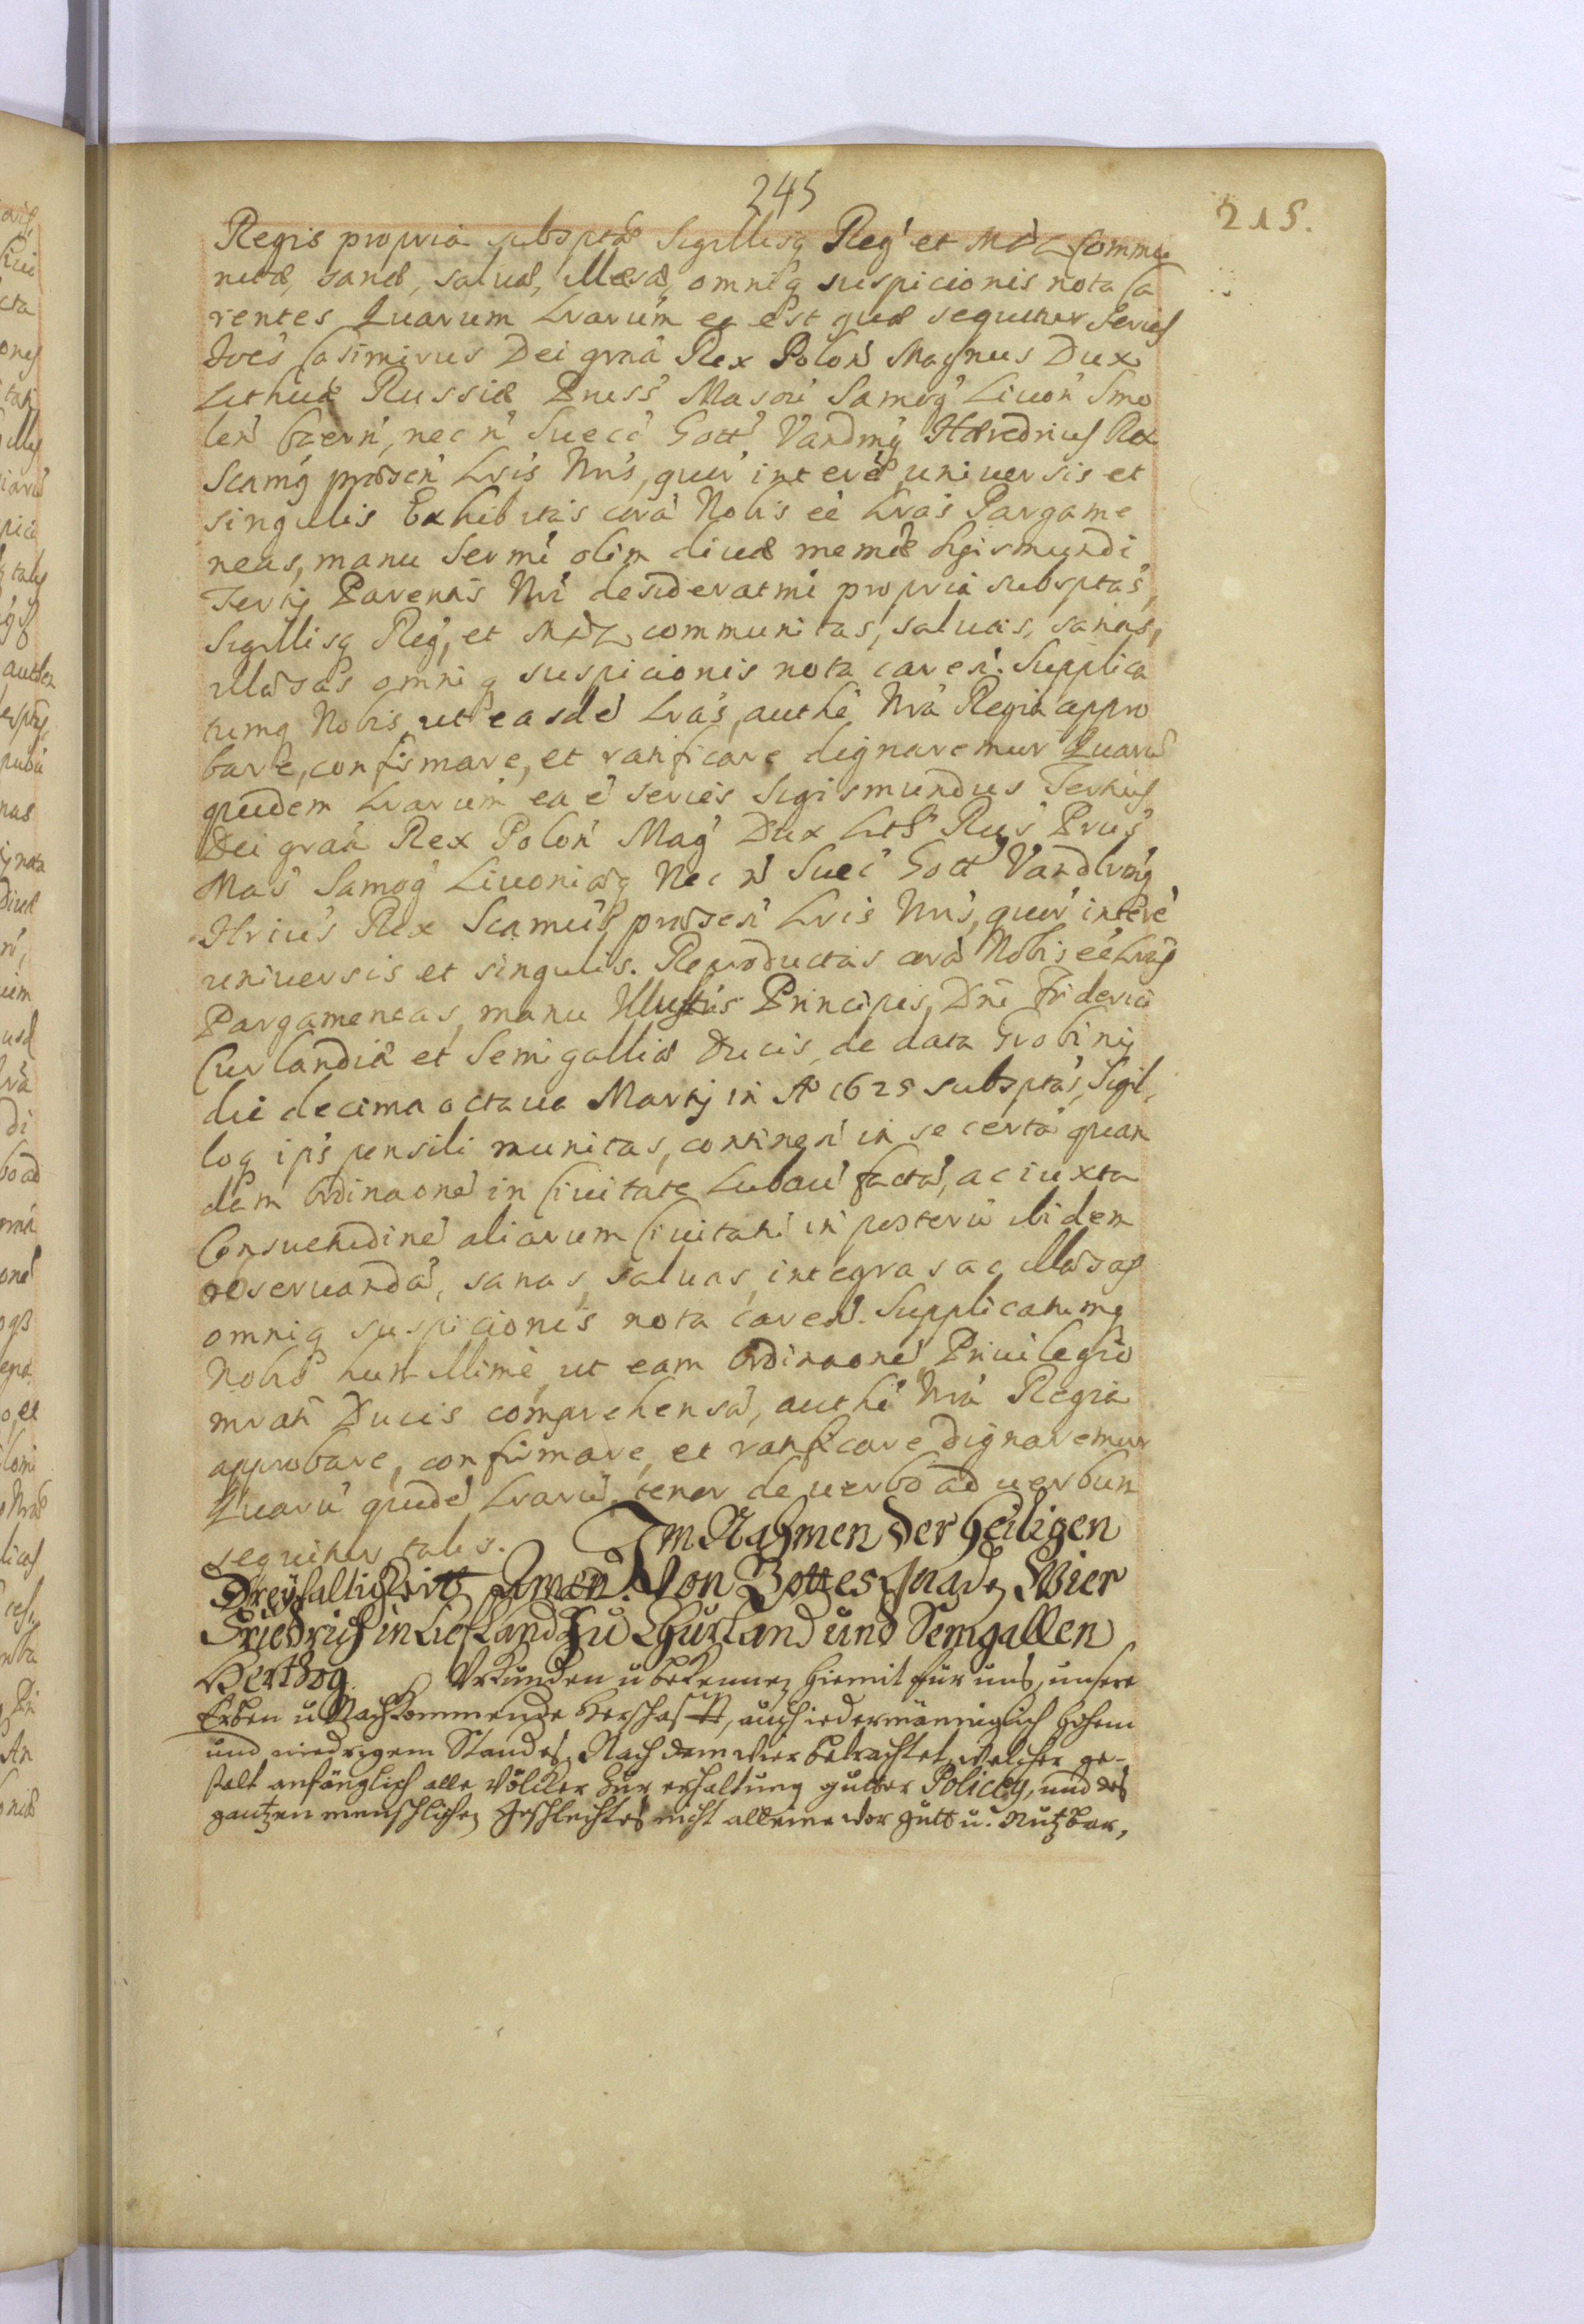 245
215.
Regis propria subsptæ Sigillisq Reg' et MDL Commu
nitæ, sanæ, saluæ, illæsæ, omniq suspicionis nota Ca
rentes Quarum Lrarum ea est quæ sequitur Series
Joês Casimirus Dei graâ Rex Polon' Magnus Dux
Lithuæ Russiæ Pruss' Masou' Samog' Liuon' Smo
len' Czern', nec n' Suec' Gott' Vandmq Hæredrius Rex
Scamq præsen' Lris Nris, quor' interê, universis et
singulis Exhibitas corâ Nobis eê Lras Pargame
neas, manu Sermi olim diuæ memæ Sigismundi
Tertij Parentis Nri desideratmi propria subsptas,
Sigillisq Reg, et MDL communitas, saluas, sanas,
illæsas omniq suspicionis nota caren'. Supplica
tumq Nobis ut easdê Lras, authê Nrâ Regiâ appro
bare, confirmare, et ratificare dignaremur Quarû
quidem Lrarum ea ê series Sigismundus Tertius
Dei graâ Rex Polon' Mag' Dux Lith' Rus' Prus'
Mas' Samog' Liuoniæq Nec n' Suec' Gott' Vandlrmq
Hrius Rex Scamus præsen' Lris Nris, quor' interê
universis et singulis. Reproductas corâ Nobis eê Lras
Pargameneas, manu Illustris Principis, Dni Friderici
Curlandiæ et Semigalliæ Ducis, de data Grobinij
die decima octaua Martij in Aº 1625 subsptas, Sigil,
loq ips' pensili munitas, continen' in se certâ quan
dam Ordinaonê in Ciuitate Lubau' factâ, ac iuxta
Consuetudinê aliarum Ciuitatû in posterû ibidem
obseruandâ, sanas, saluas, integras ac illæsas
omniq suspicionis nota caren'. Supplicatumq
Nobis humillimè, ut eam Ordinaonê Priuilegio
mrati Ducis comprehensâ, authê Nrâ Regiâ
approbare, confirmare, et ratificare dignaremur
Quarû quidê Lrarû, tenor de uerbo ad uerbum
sequitur talis. Im Nahmen Der heiligen
Dreyfaltickeitt Amen. Von Gottes Gnade Wier
Friedrich in Liefland Zu Churland und Semgallen
Herthzog. Urkunden u bekennen hiemit für uns, unsere
Erben u Nachkommende Herschafft, auch iedermänniglich hohen
und niedrigem Standes, Nach dem wier betrachtet, welcher ge-
stalt anfänglich alle Völcker zur erhaltung gutter Policey, und des
gantzen menschlichen Geschlechtes nicht alleine vor gutt u. Nutzbar,